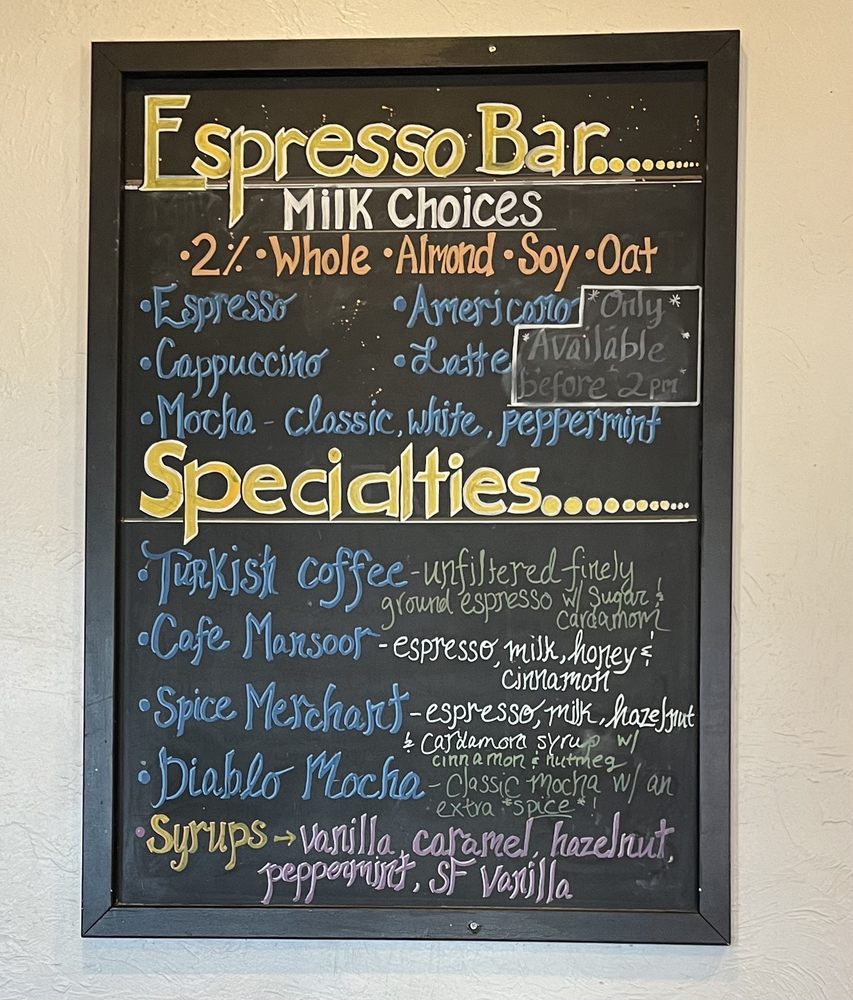 Espresso Bar........
Milk Choices
•2% •Whole •Almond •Soy •Oat
•Espresso •Americano
*Only*
•Cappuccino •Latte
*Available
before 2pm*
•Mocha - classic, white, peppermint
Specialties..........
•Turkish coffee - unfiltered finely
ground espresso w/ sugar &
cardamom
•Cafe Mansoor - espresso, milk, honey &
cinnamon
•Spice Merchant - espresso, milk, hazelnut
& cardamom syrup w/
cinnamon & nutmeg
•Diablo Mocha - classic mocha w/ an
extra *spice*!
•Syrups → vanilla, caramel, hazelnut,
peppermint, SF vanilla